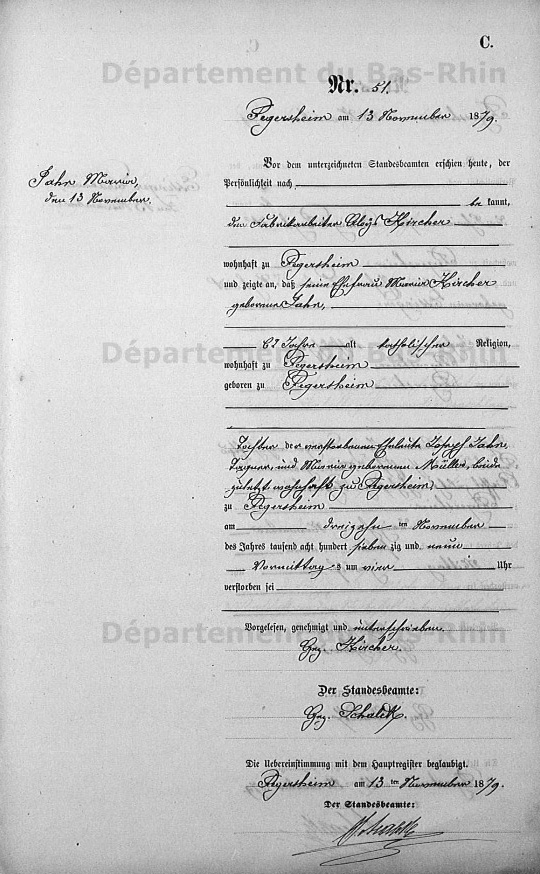 C.
Département du Bas-Rhin
Nr. 51.
Fegersheim am 13 November 1879.
Vor dem unterzeichneten Standesbeamten erschien heute, der
Jahn Maria,
den 13 November.
Persönlichkeit nach
be kannt,
den Fabrikarbeiter Aloys Kircher
wohnhaft zu Fegersheim
und zeigte an, daß seine Ehefrau Maria Kircher
geborene Jahn,
62 Jahre alt katholischer Religion,
Département du Bas-Rhin
wohnhaft zu Fegersheim
geboren zu Fegersheim
Tochter der verstorbenen Eheleute Joseph Jahn,
und Maria geborenen Müller, beide
zuletzt wohnhaft zu Fegersheim,
zu Fegersheim
am dreizehn ten November
des Jahres tausend acht hundert sieben zig und neun
Vormittag s um vier Uhr
verstorben sei
Vorgelesen, genehmigt und unterschrieben.
Département du Bas-Rhin
Gez. Kircher.
Der Standesbeamte:
Gez. Schalck.
Die Uebereinstimmung mit dem Hauptregister beglaubigt.
Fegersheim am 13 ten November 1879.
Der Standesbeamte:
Schalck